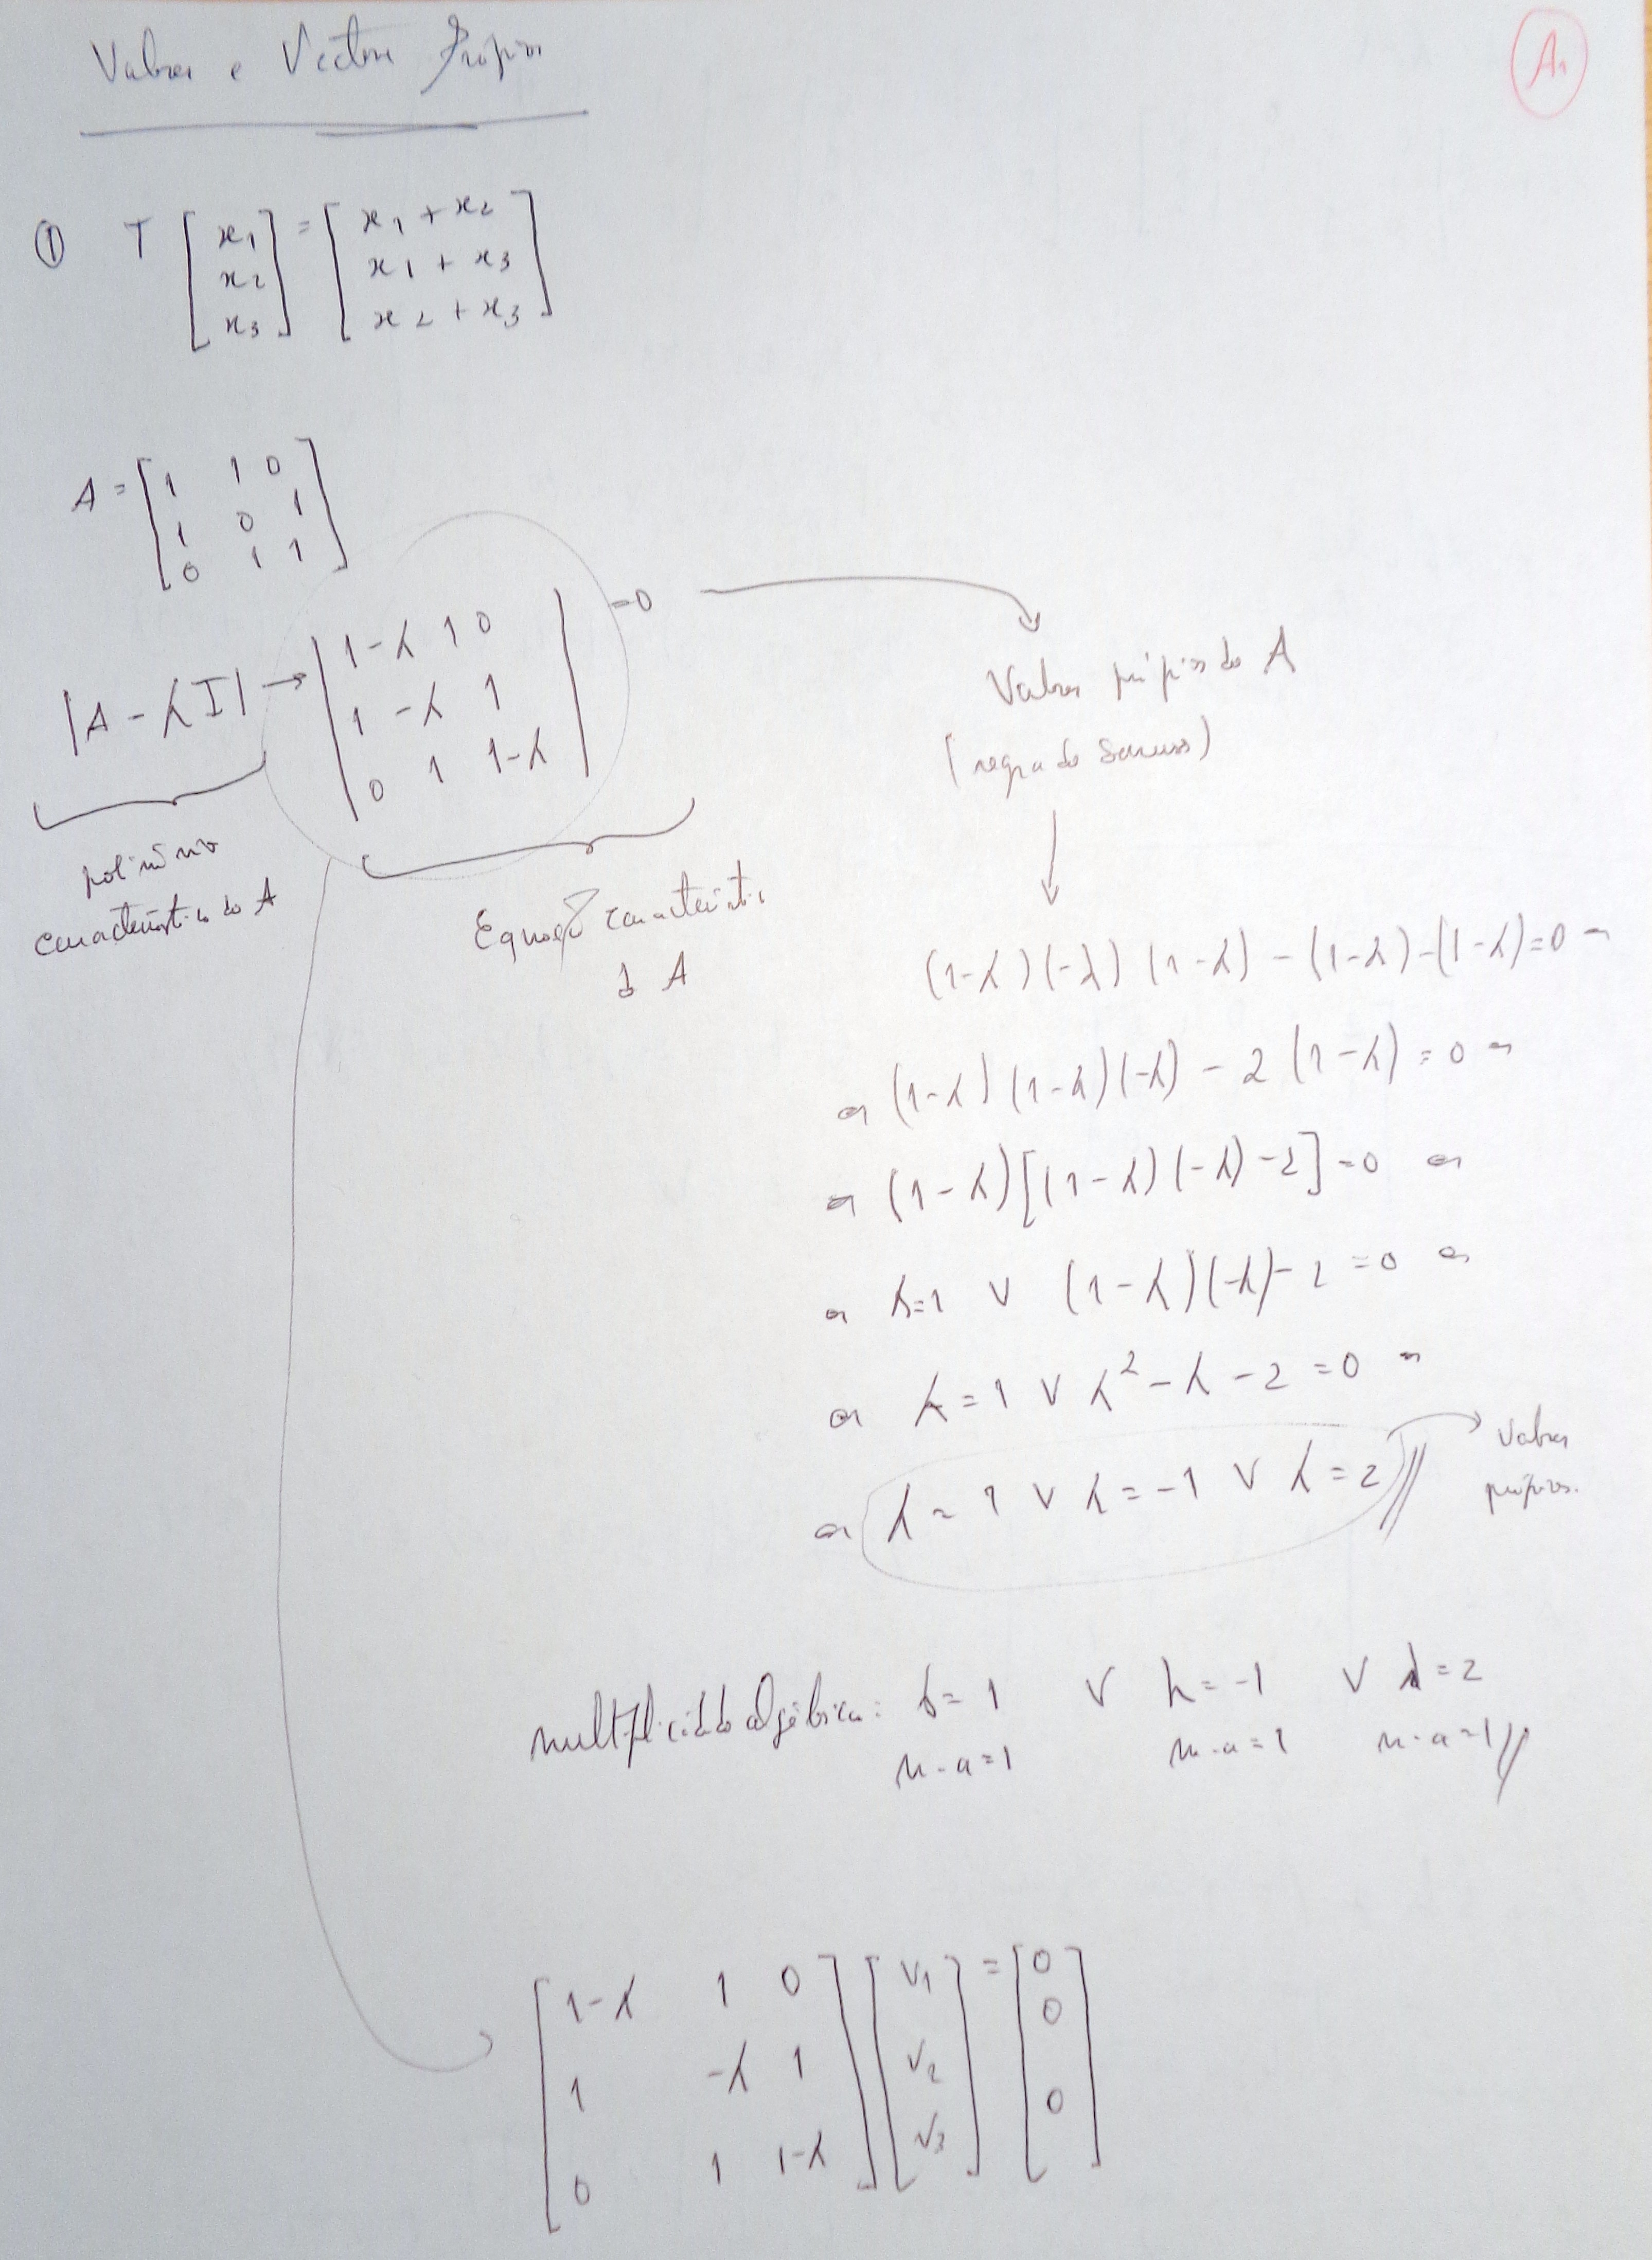 Valores e Vectores Próprios
A1
① T [x1 x2 x3] = [x1 + x2
x1 + x3
x2 + x3]
A = [1 1 0
1 0 1
0 1 1]
|A - λI| → |1-λ 1 0
1 -λ 1
0 1 1-λ| = 0
polinómio
característico de A
Equação característica
de A
Valores próprios de A
(regra de Sarrus)
(1-λ)(-λ)(1-λ) - (1-λ) - (1-λ) = 0 ⇔
⇔ (1-λ)(1-λ)(-λ) - 2(1-λ) = 0 ⇔
⇔ (1-λ)[(1-λ)(-λ) - 2] = 0 ⇔
⇔ λ=1 ∨ (1-λ)(-λ) - 2 = 0 ⇔
⇔ λ = 1 ∨ λ² - λ - 2 = 0 ⇔
⇔ λ = 1 ∨ λ = -1 ∨ λ = 2 //
valores
próprios.
multiplicidade algébrica: λ = 1 ∨ λ = -1 ∨ λ = 2
m.a = 1 m.a = 1 m.a = 1 //
[1-λ 1 0
1 -λ 1
0 1 1-λ] [v1 v2 v3] = [0 0 0]